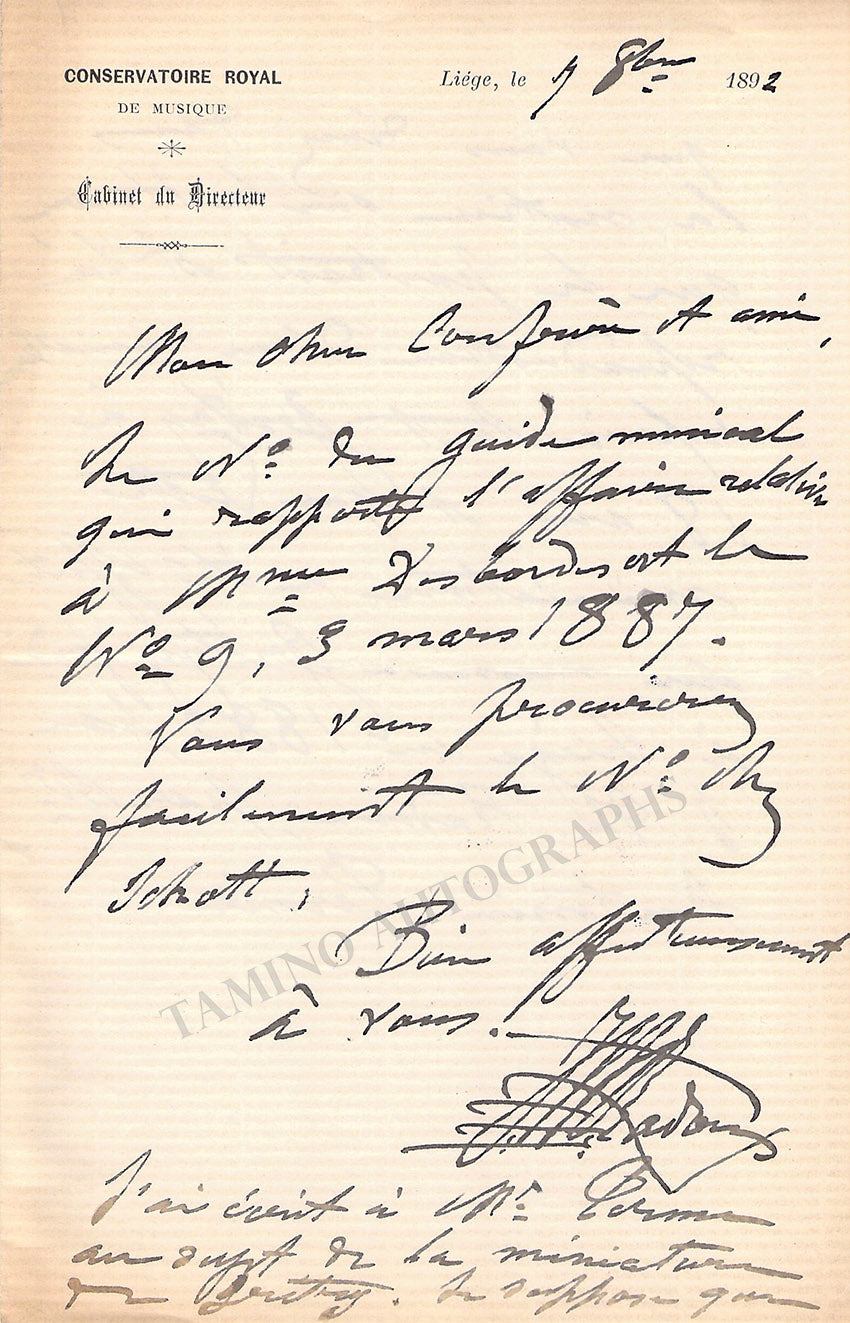 CONSERVATOIRE ROYAL
DE MUSIQUE
Cabinet du Directeur
Liége, le 7 8bre 1892
Mon cher Confrère et ami,
Le No du guide musical
qui rapporte l'affaire relative
à Mme Desbordes est le
No 9, 3 mars 1887.
Vous vous procurerez
facilement le No chez
Schott.
Bien affectueusement
à vous.
Radoux
J'ai écrit à Mr Terme
au sujet de la miniature
de Grétry. Je suppose que
TAMINO AUTOGRAPHS